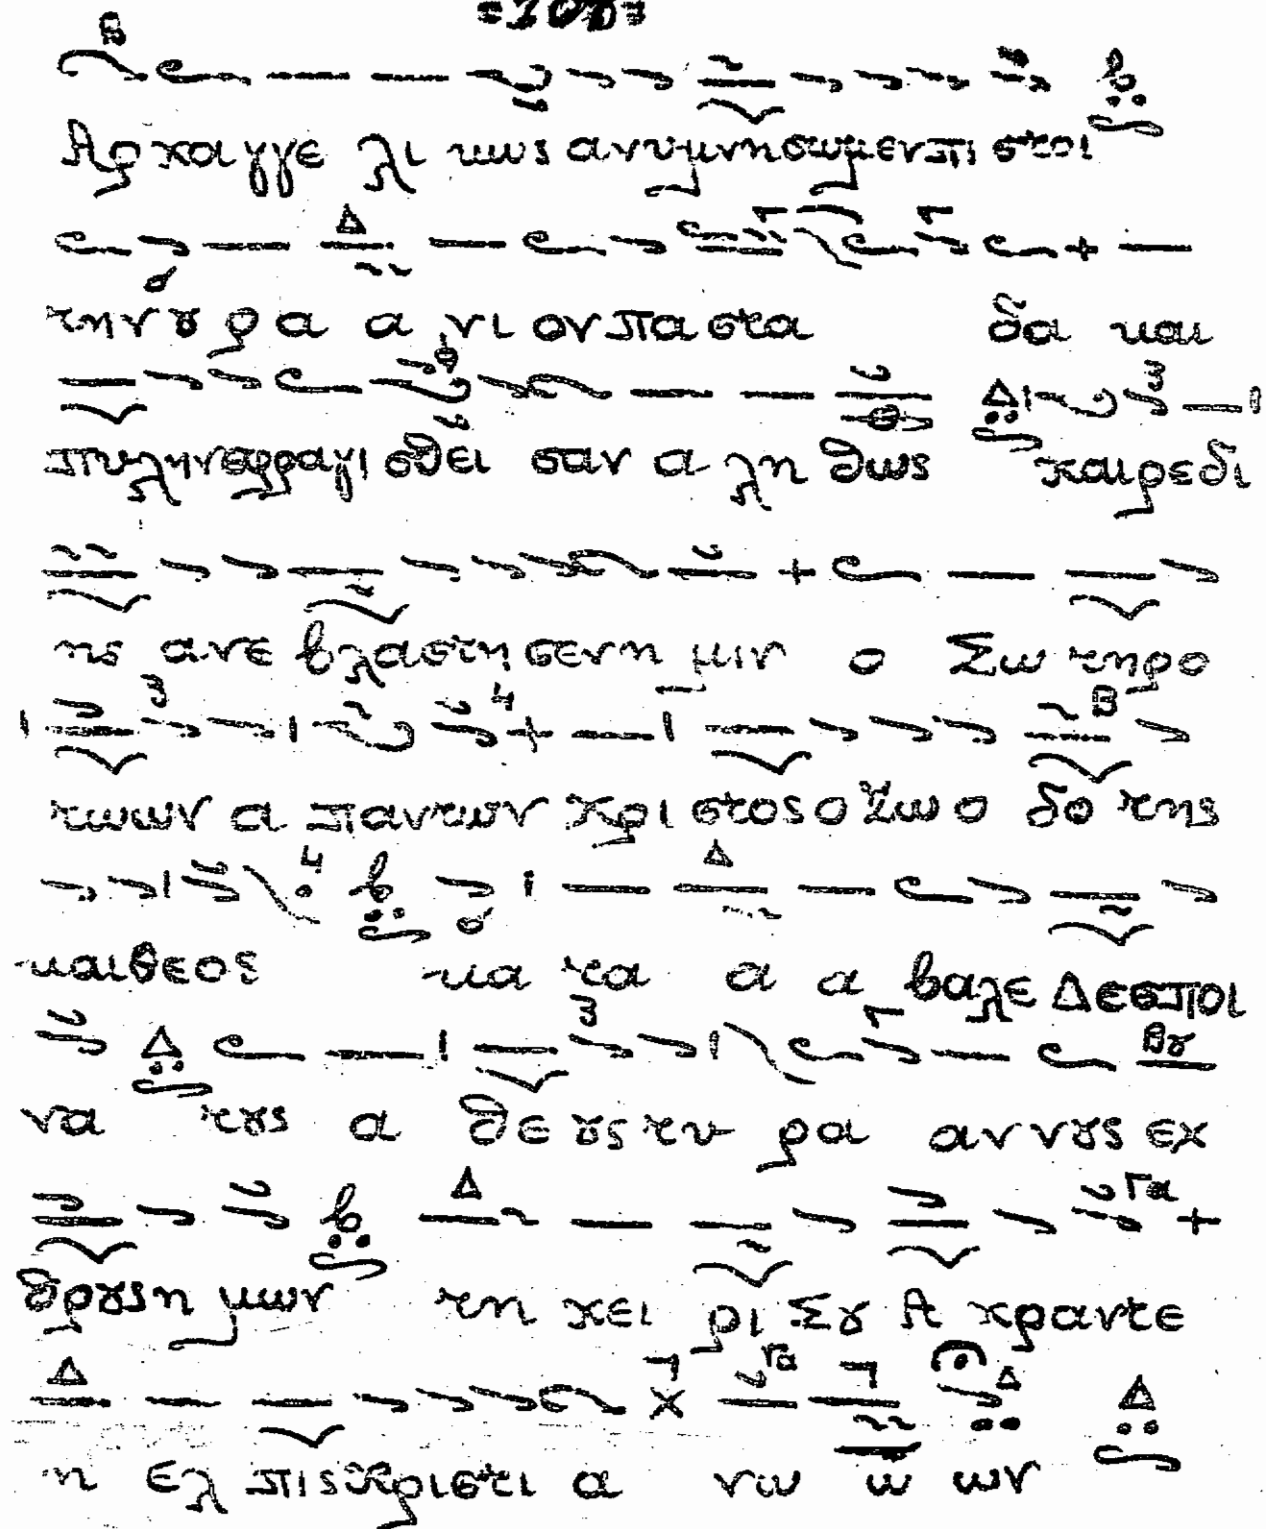 Αρχαγγε λι κως ανυμνησωμεν πι στοι
την ȣ ρα α νι ον πα στα δα και
πυλην εσφραγι σθει σαν α λη θως χαιρε δι
ης ανε βλαστη σεν η μιν ο Σω τηρ ο
των ων α παντων Χρι στος ο Ζω ο δο της
και θεος κα τα α α βαλε Δεσποι
να τȣς α θε ȣς τυ ρα αννȣς εχ
θρȣς η μων τη χει ρι Σȣ Α χραντε
η ελ πις Χριστι α νω ω ων